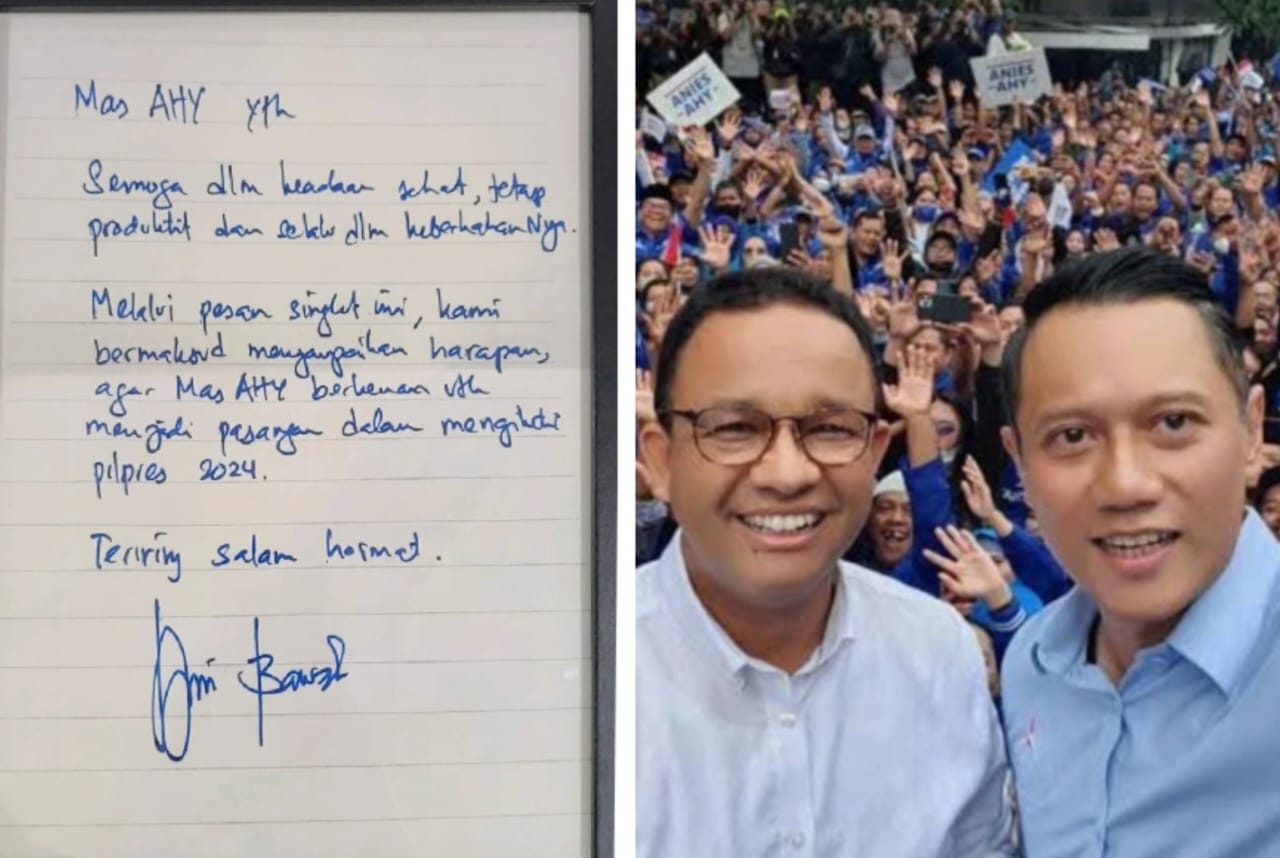 Mas AHY Yth
Semoga dlm keadaan sehat, tetap
produktif dan selalu dlm keberkahanNya.
Melalui pesan singkat ini, kami
bermaksud menyampaikan harapan,
agar Mas AHY berkenan utk
menjadi pasangan dalam mengikuti
pilpres 2024.
Teriring salam hormat.
ANIES
-AHY-
ANIES
-AHY-